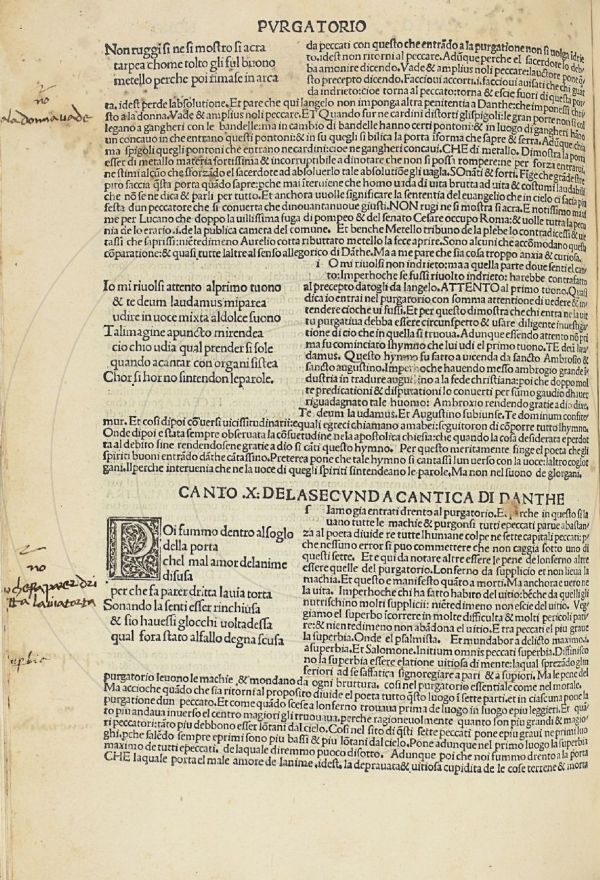 PVRGATORIO
Non ruggi si ne si mostro si acra
tarpea chome tolto gli ful buono
metello perche poi rimase in arca
da peccati con questo che entrādo a la purgatione non si uolga
idest non ritorni al peccare. Adūque perche el sacerdote lo
ba amonire dicendo. Vade & amplius noli peccare: lauctore
sto precepto dicendo. Faccioui accorti.i.faccioui auisati che chi
da indrieto: cioe torna al peccato: torna & escie fuori di questa
ta. idest perde labsolutione. Et pare che qui langelo non imponga altra penitentia a Danthe: che
sto a la donna. Vade & amplius noli peccare. ET Quando fur ne cardini distorti gli spigoli: le gran porte non si col
legano a gangheri con le bandelle: ma in cambio di bandelle hanno certi pontoni: & in luogo di gangheri
un concauo in che entrano questi pontoni: & in su quegli si bilica la porta
ma spigoli quegli pontoni che entrano ne cardini: cioe ne gangheri concaui. CHE di metallo. Dimostra la porta
esser di metallo materia fortissima & incorruptibile a dinotare che non si possi rompere: ne per forza entrarui
SOnāti & forti.
pito faccia qsta porta quādo sapre:
che nō se ne dica & parli per tutto. Et anchora uuole significare la sententia del euangelio che in cielo si fa
festa dun peccatore che si conuerta che dinouantanoue giusti. NON rugi ne si mostra si acra. E notissimo
me per Lucano che doppo la uilissima fuga di pompeo & del senato Cesare occupo Roma: & uolle tutta la
nia de lo erario.i.de la publica camera del comune. Et benche Metello tribuno de la plebe lo contradicessi &
tassi che saprissi: niētedimeno Aurelio cotta ributtato metello la fece aprire. Sono alcuni che accōmodano questa
cōparatione: & quasi tutte laltre al senso allegorico di Dāthe. Ma a me pare che sia cosa troppo anxia & curiosa.
Io mi riuolsi attento al primo tuono
& te deum laudamus mi parea
udire in uoce mixta al dolce suono
Tal imagine apuncto mi rendea
cio chio udia qual prender si sole
quando a cantar con organi si stea
Chor si hor no sintendon le parole.
i O mi riuolsi non indrieto: ma a quella parte doue senti el can
to: Imperhoche se fussi riuolto indrieto: harebbe contrafatto
al precepto datogli da langelo. ATTENTO al primo tuono.
dica io entrai nel purgatorio con somma attentione di uedere &
tendere cioche ui fussi. Et per questo dimostra che chi entra ne la
ta purgatiua debba essere circunspetto & usare diligente inuestiga
tione di cio che in quella si truoua. Adunque essendo attento nō pri
ma fu cominciato lhymno che lui udi el primo tuono. TE deū lau
damus. Questo hymno fu fatto a uicenda da sancto Ambrosio &
sancto augustino. Imperhoche hauendo messo ambrogio grande
dustria in tradure augustino a la fede christiana: poi che doppo
te predicationi & disputationi lo conuerti per summo gaudio
riguadagnato tale huomo: Ambroxio rendendo gratie a dio dixe.
Te deum laudamus. Et Augustino subiunse. Te dominum confite
mur. Et cosi dipoi cō uersi uicissitudinarii: equali egreci chiamano amabei: seguitoron di cōporre tutto lhymno.
Onde dipoi e stata sempre obseruata la cōsuetudine ne la apostolica chiesa: che quando la cosa desiderata e perdot
ta al debito fine rendendosene gratie a dio si cāti questo hymno. Per questo meritamente finge el poeta che gli
spiriti buoni entrādo dāthe cātassino. Preterea pone che tale hymno si cantassi lun uerso con la uoce: laltro cogli or
gani. Il perche interuenia che ne la uoce di quegli spiriti sintendeano le parole. Ma non nel suono de gliorgani.
CANTO .X: DE LA SECVNDA CANTICA DI DANTHE
POi fummo dentro al soglo
della porta
chel mal amor delanime
disusa
per che fa parer dritta la uia torta
Sonando la senti esser rinchiusa
& sio hauessi glocchi uolta dessa
qual fora stato al fallo degna scusa
s Iamo gia entrati drento al purgatorio. Et perche in questo si la
uano tutte le machie & purgonsi tutti epeccati parue abastan
za al poeta diuidere tutte lhumane colpe ne sette capitali peccati:
che nessuno error si puo commettere che non caggia sotto uno di
questi sette. Et e qui da notare altro essere le pene de lonferno altre
essere quelle del purgatorio. Lonferno da supplicio et non lieua la
machia. Et questo e manifesto quāto a morti. Ma anchora e uero ne
la uita. Imperhoche chi ha fatto habito del uitio: bēche da quelli gli
nutrischino molti supplicii: niētedimeno non escie del uitio. Veg
giamo el superbo icorrere in molte difficulta & molti pericoli
re: & nientedimeno non abādona el uitio. Et tra peccati el piu graue
la superbia. Onde el psalmista. Et emundabor a delicto maximo.i.
a superbia. Et Salomone. Initium omnis peccati superbia. Diffinisco
no la superbia essere elatione uitiosa di mente: laqual sprezādo gli in
feriori ad se saffatica signoregiare a pari & a supiori. Ma le pene del
purgatorio leuono le machie, & mondano da ogni bruttura. cosi nel purgatorio essentiale come nel morale.
Ma accioche quādo che sia ritorni al proposito diuide el poeta tutto qsto luogo i sette parti. et in ciascuna pone la
purgatione dun peccato. Et come quādo scese a lonferno trouaua prima de luogo in luogo epiu leggieri. Et quā
to piu andaua inuerso el centro magiori gli truouaua. perche ragioneuolmente quanto son piu grandi & magio
ri peccatori: tāto piu debbono esser lōtani dal cielo. Cosi nel sito di qsti sette peccati pone epiu graui ne primi luo
ghi. pche salēdo sempre eprimi sono piu bassi & piu lōtani dal cielo. Pone adunque nel primo luogo la superbia
maximo de tutti epeccati. de laquale diremmo puoco disotto. Adunque poi che noi fummo drento a la porta
CHE laquale porta el male amore de lanime. idest. la deprauata & uitiosa cupidita de le cose terrene & morta
no
a la donna vade
no